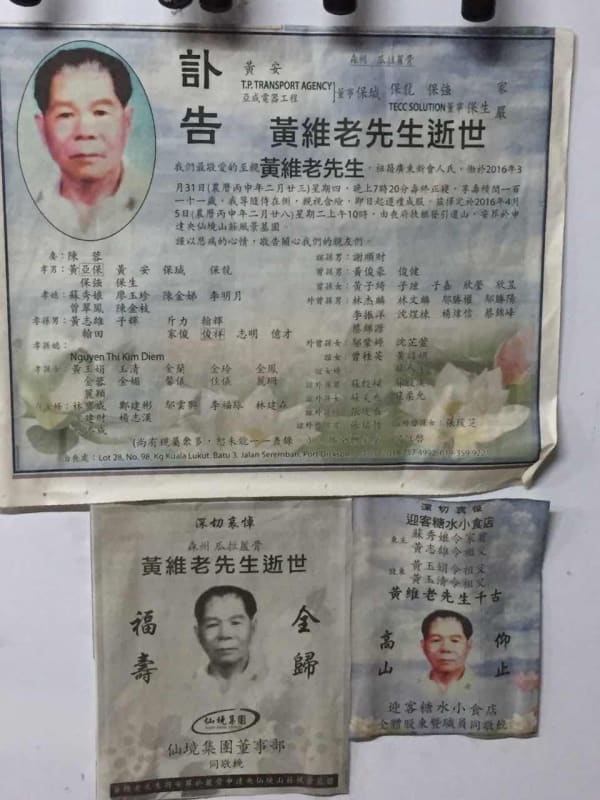 訃告
黃安
T.P. TRANSPORT AGENCY
亞成電器工程
董事
保珹 保龍 保強
TECC SOLUTION董事保生
家嚴
森州 瓜拉蘆骨
黃維老先生逝世
我們最敬愛的至親黃維老先生，祖籍廣東新會人氏，慟於2016年3
月31日(農曆丙申年二月廿三)星期四，晚上7時20分壽終正寢，享壽積閏一百
一十一歲，我等隨侍在側，親視含殮，即日起遵禮成服。茲擇定於2016年4
月5日(農曆丙申年二月廿八)星期二上午10時，由喪府扶櫬發引還山，安葬於中
達央仙境山莊風景墓園。
謹以悲痛的心情，敬告關心我們的親友們。
妻：陳蓉
孝男：黃亞保 黃安 保珹 保龍
保強 保生
孝媳：蘇秀娘 廖玉珍 陳金娣 李明月
曾翠鳳 陳金枝
孝孫男：黃志雄 子輝 斤力 翰輝
翰田 家俊 俊祥 志明 億才
孝孫媳：
Nguyen Thi Kim Diem
孝孫女：黃玉娟 玉清 金蘭 金玲 金鳳
金蓉 金媚 馨儀 佳儀 麗珊
麗穎
鄭建彬 鄔雲興 李福琼
建財 楊志漢
謝順財
黃俊豪 俊健
黃子綺 子瑄 子嘉 欣瑩 欣昱
外曾孫男：林杰麟 林文麟 鄔勝權 鄔勝陽
李振洋 沈煜棋 楊偉信 蔡錦峰
蔡錦源
外曾孫女：鄔蒙婷 沈芷萱
曾桂英
(尚有親屬眾多，恕未能一一盡錄
治喪處：Lot 28, No. 98, Kg Kuala Lukut, Batu 3, Jalan Seremban, Port Dickson
深切哀悼
森州 瓜拉蘆骨
黃維老先生逝世
福壽
全歸
仙境集團
仙境集團董事部
同敬輓
黃維老先生將安葬於蘆骨中達央仙境山莊風景墓園
深切哀悼
迎客糖水小食店
東主 蘇秀娘令家翁
黃志雄令祖父
股東 黃玉娟令祖父
黃玉清令祖父
黃維老先生千古
高山
仰止
迎客糖水小食店
全體股東暨職員同敬輓